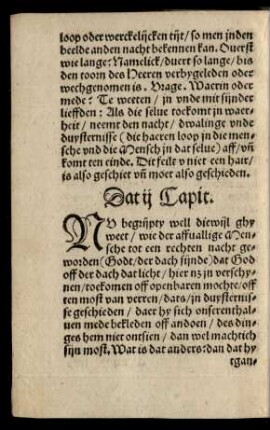 loop oder werckelijcken tijt/ so men jnden
beelde anden nacht bekennen kan. Querst
wie lange: Namelick/ duert so lange/ bis
den toorn des Heeren verbygeleden oder
wechgenomen is. Vrage. Waerin oder
mede: Te weeten/ jn vnde mit sijnder
lieffden: Als die selue toekomt jn waer-
heit/ neemt den nacht/ dwalinge vnde
duysternisse (dit haeren loop jn die men-
sche vnd die Mensch jn dat selue) aff/ vñ
komt ten einde. Dit feilt v niet een hair/
is also geschiet vñ moet also geschieden.
Dat ij Capit.
NV begrijpty well dietwijl ghy
weet/ wie der affuallige Men-
sche tot een rechten nacht ge-
worden (Godt/ der dach sijnde) dat God
off der dach dat licht/ hier nz jn verschy-
nen/ toekomen off openbaren mochte/ off
ten most van verren/ dats/ jn duysternis-
se geschieden/ daer hy sich onserenthal-
uen mede bekleden off andoen/ des din-
ges hem niet ontsien/ dan wel machtich
sijn most. Wat is dat anders: dan dat hy
tgan-